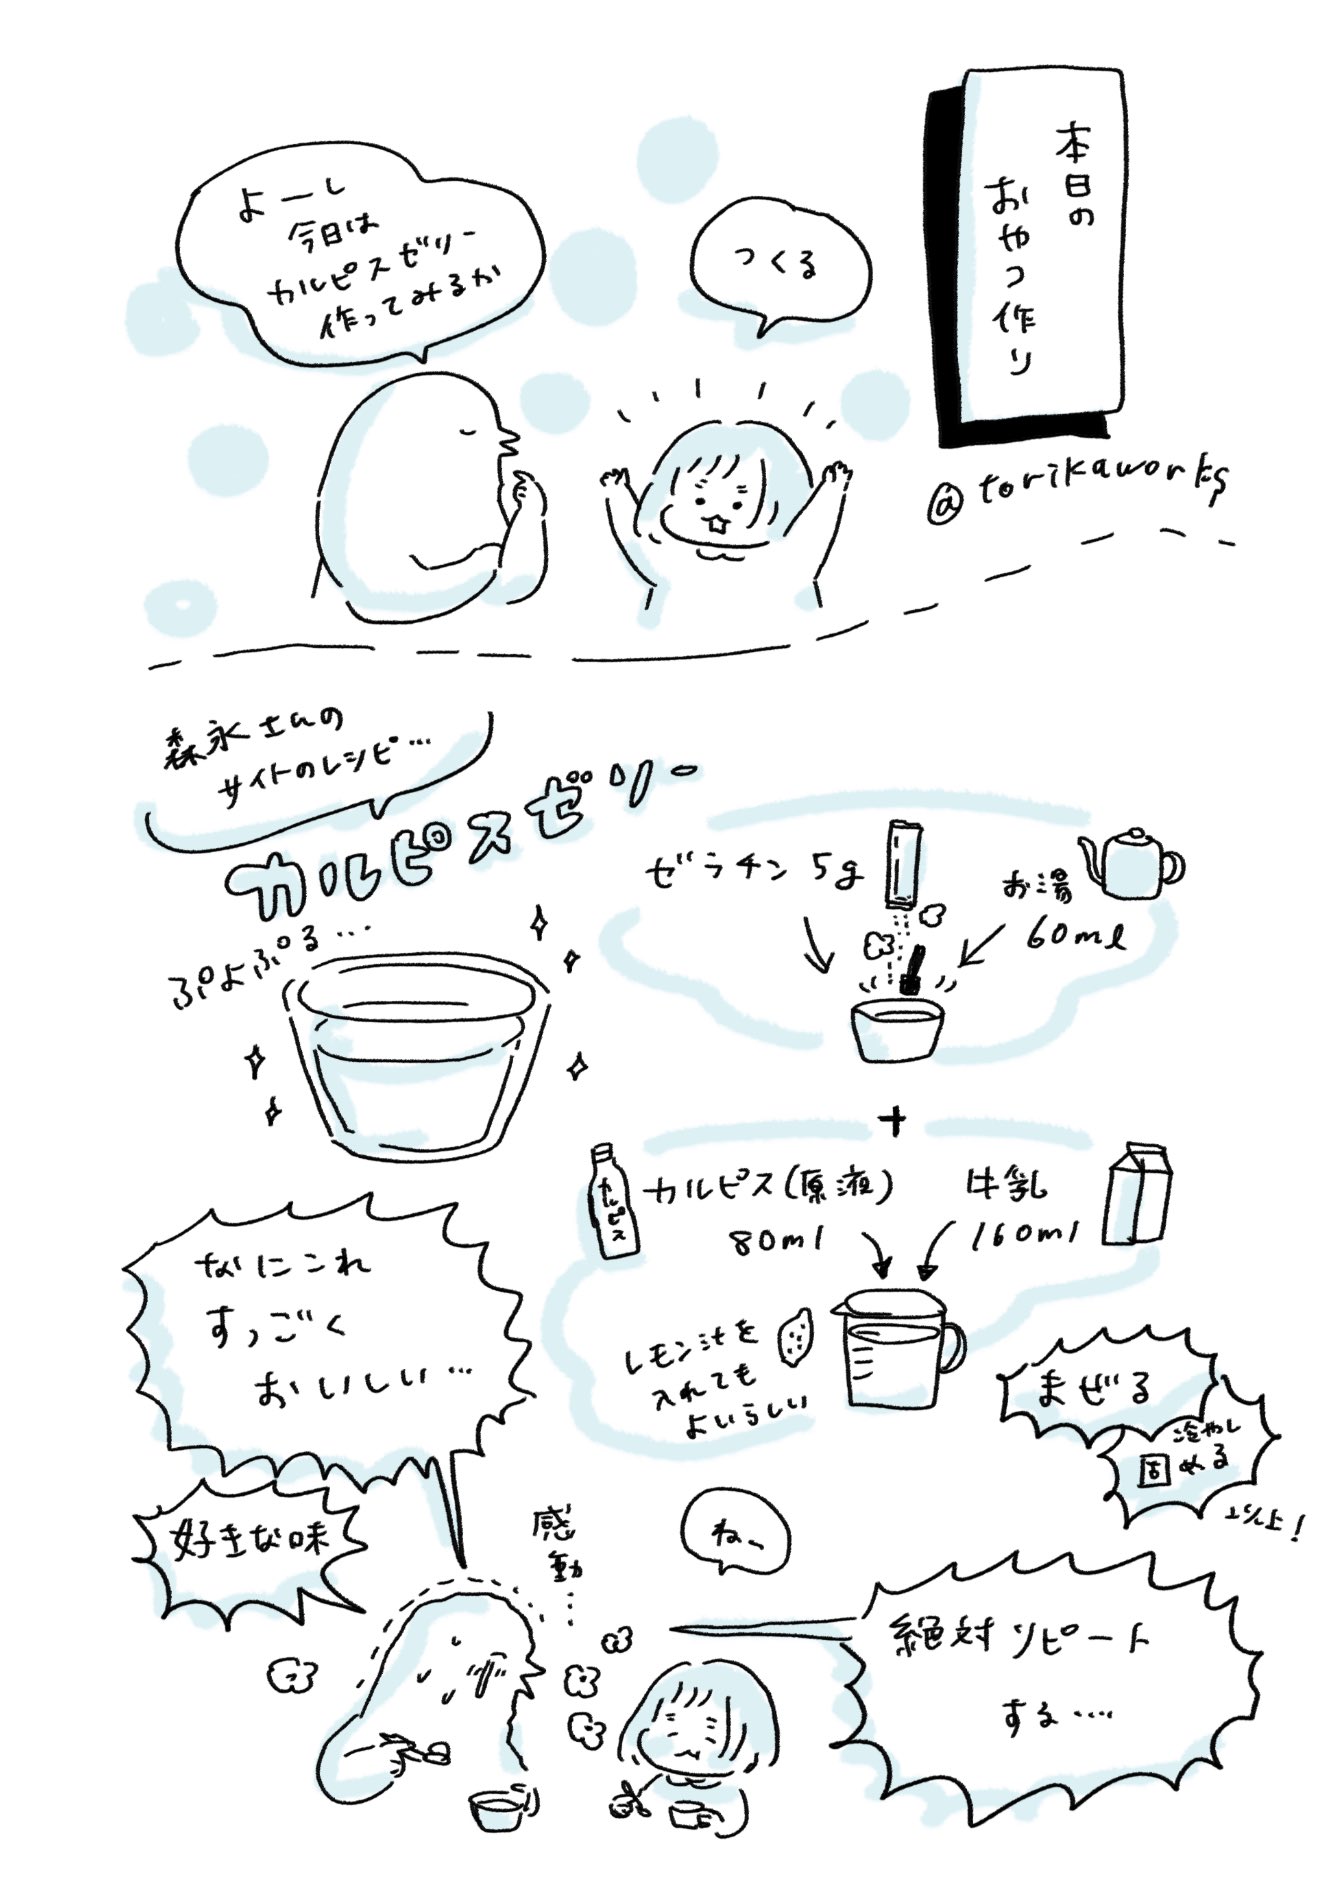 本日の
おやつ作り
@torikaworks
つくる
よーし
今日は
カルピスゼリー
作ってみるか
森永さんの
サイトのレシピ…
カルピスゼリー
ぷよぷる…
ゼラチン 5g
お湯
60ml
+
カルピス
カルピス(原液)
80ml
牛乳
160ml
レモン汁を
入れても
よいらしい
まぜる
冷やし
固める
以上!
なにこれ
すっごく
おいしい…
好きな味
感動…
ね〜
絶対リピート
する…